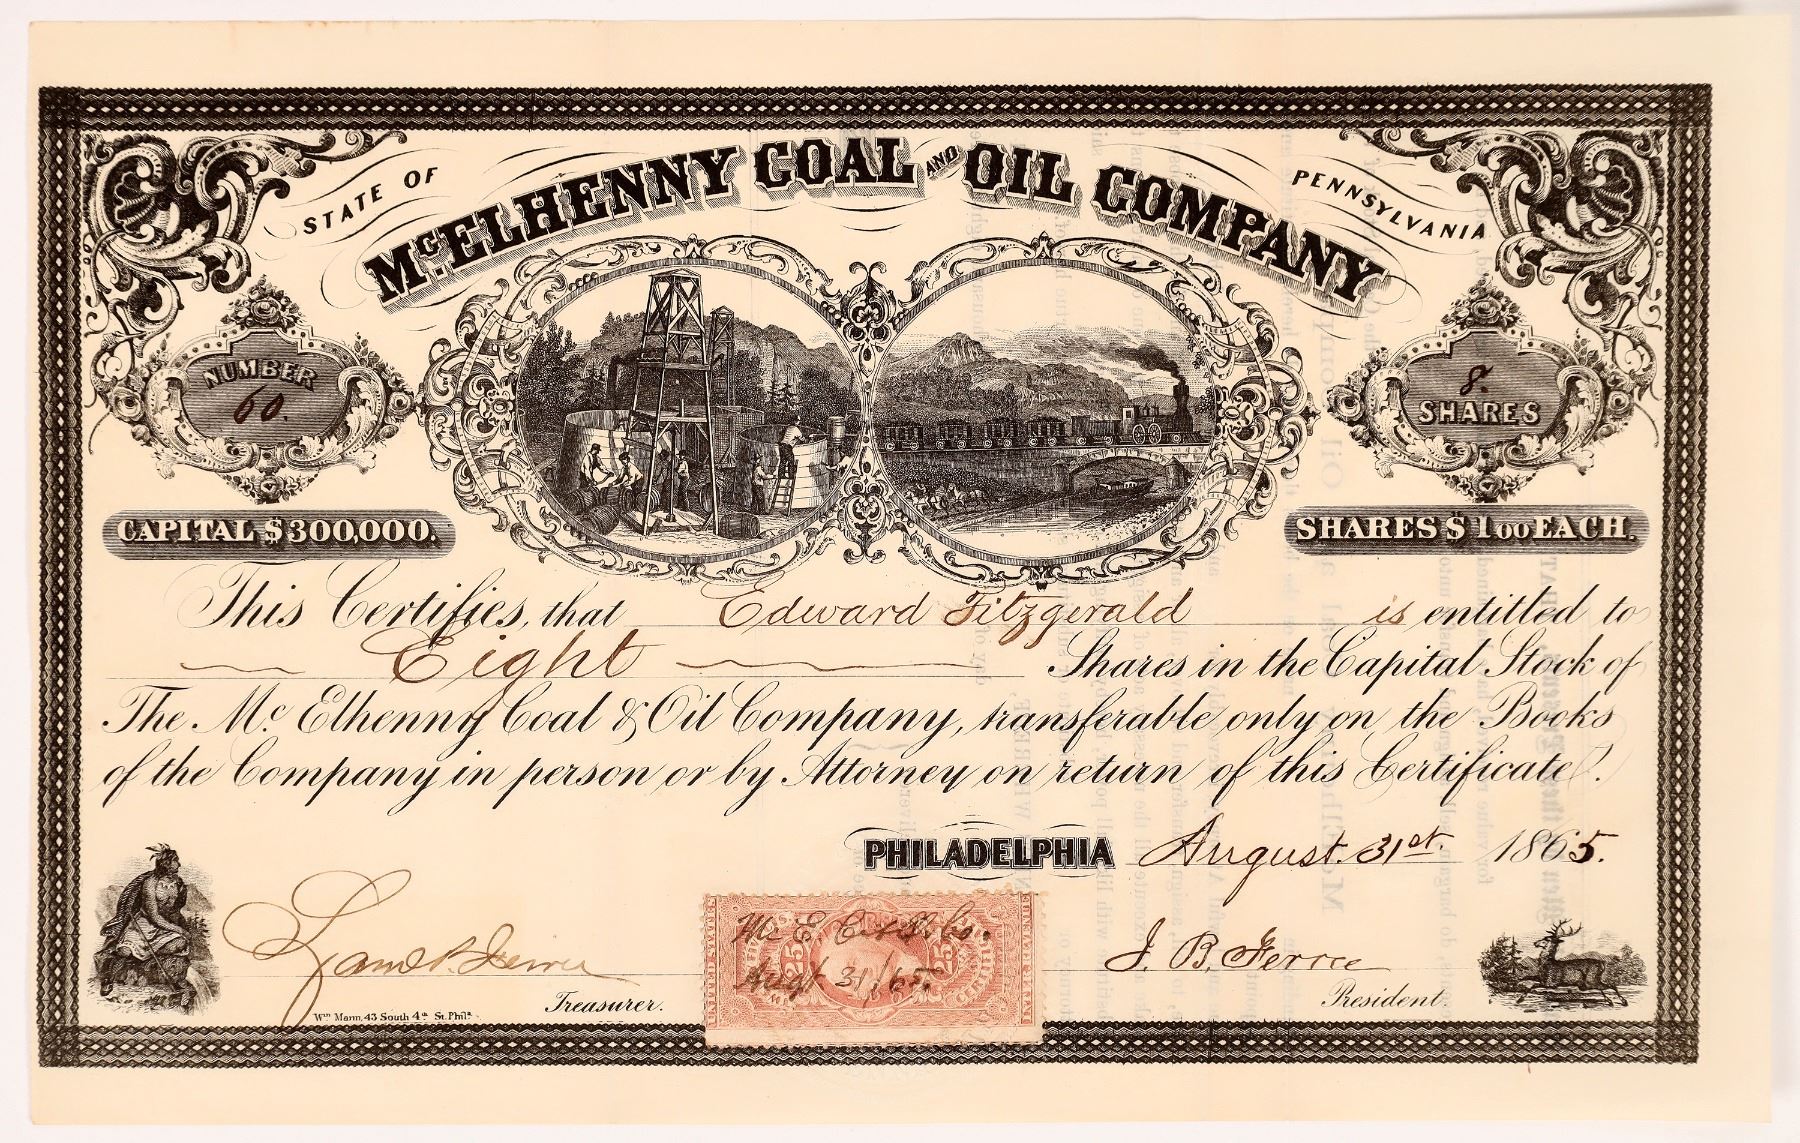 STATE OF
McELHENNY COAL AND OIL COMPANY
PENNSYLVANIA
NUMBER
60.
8.
SHARES
CAPITAL $300,000.
SHARES $1.00 EACH.
This Certifies, that Edward Fitzgerald is entitled to
Eight Shares in the Capital Stock of
The Mc. Elhenny Coal & Oil Company, transferable only on the Books
of the Company in person or by Attorney on return of this Certificate.
PHILADELPHIA August. 31st. 1865.
Mc E. C & O. Co.
Augt 31/65.
25 25
Treasurer.
J. B. Ferree
President.
Wm Mann, 43 South 4th St. Phila.